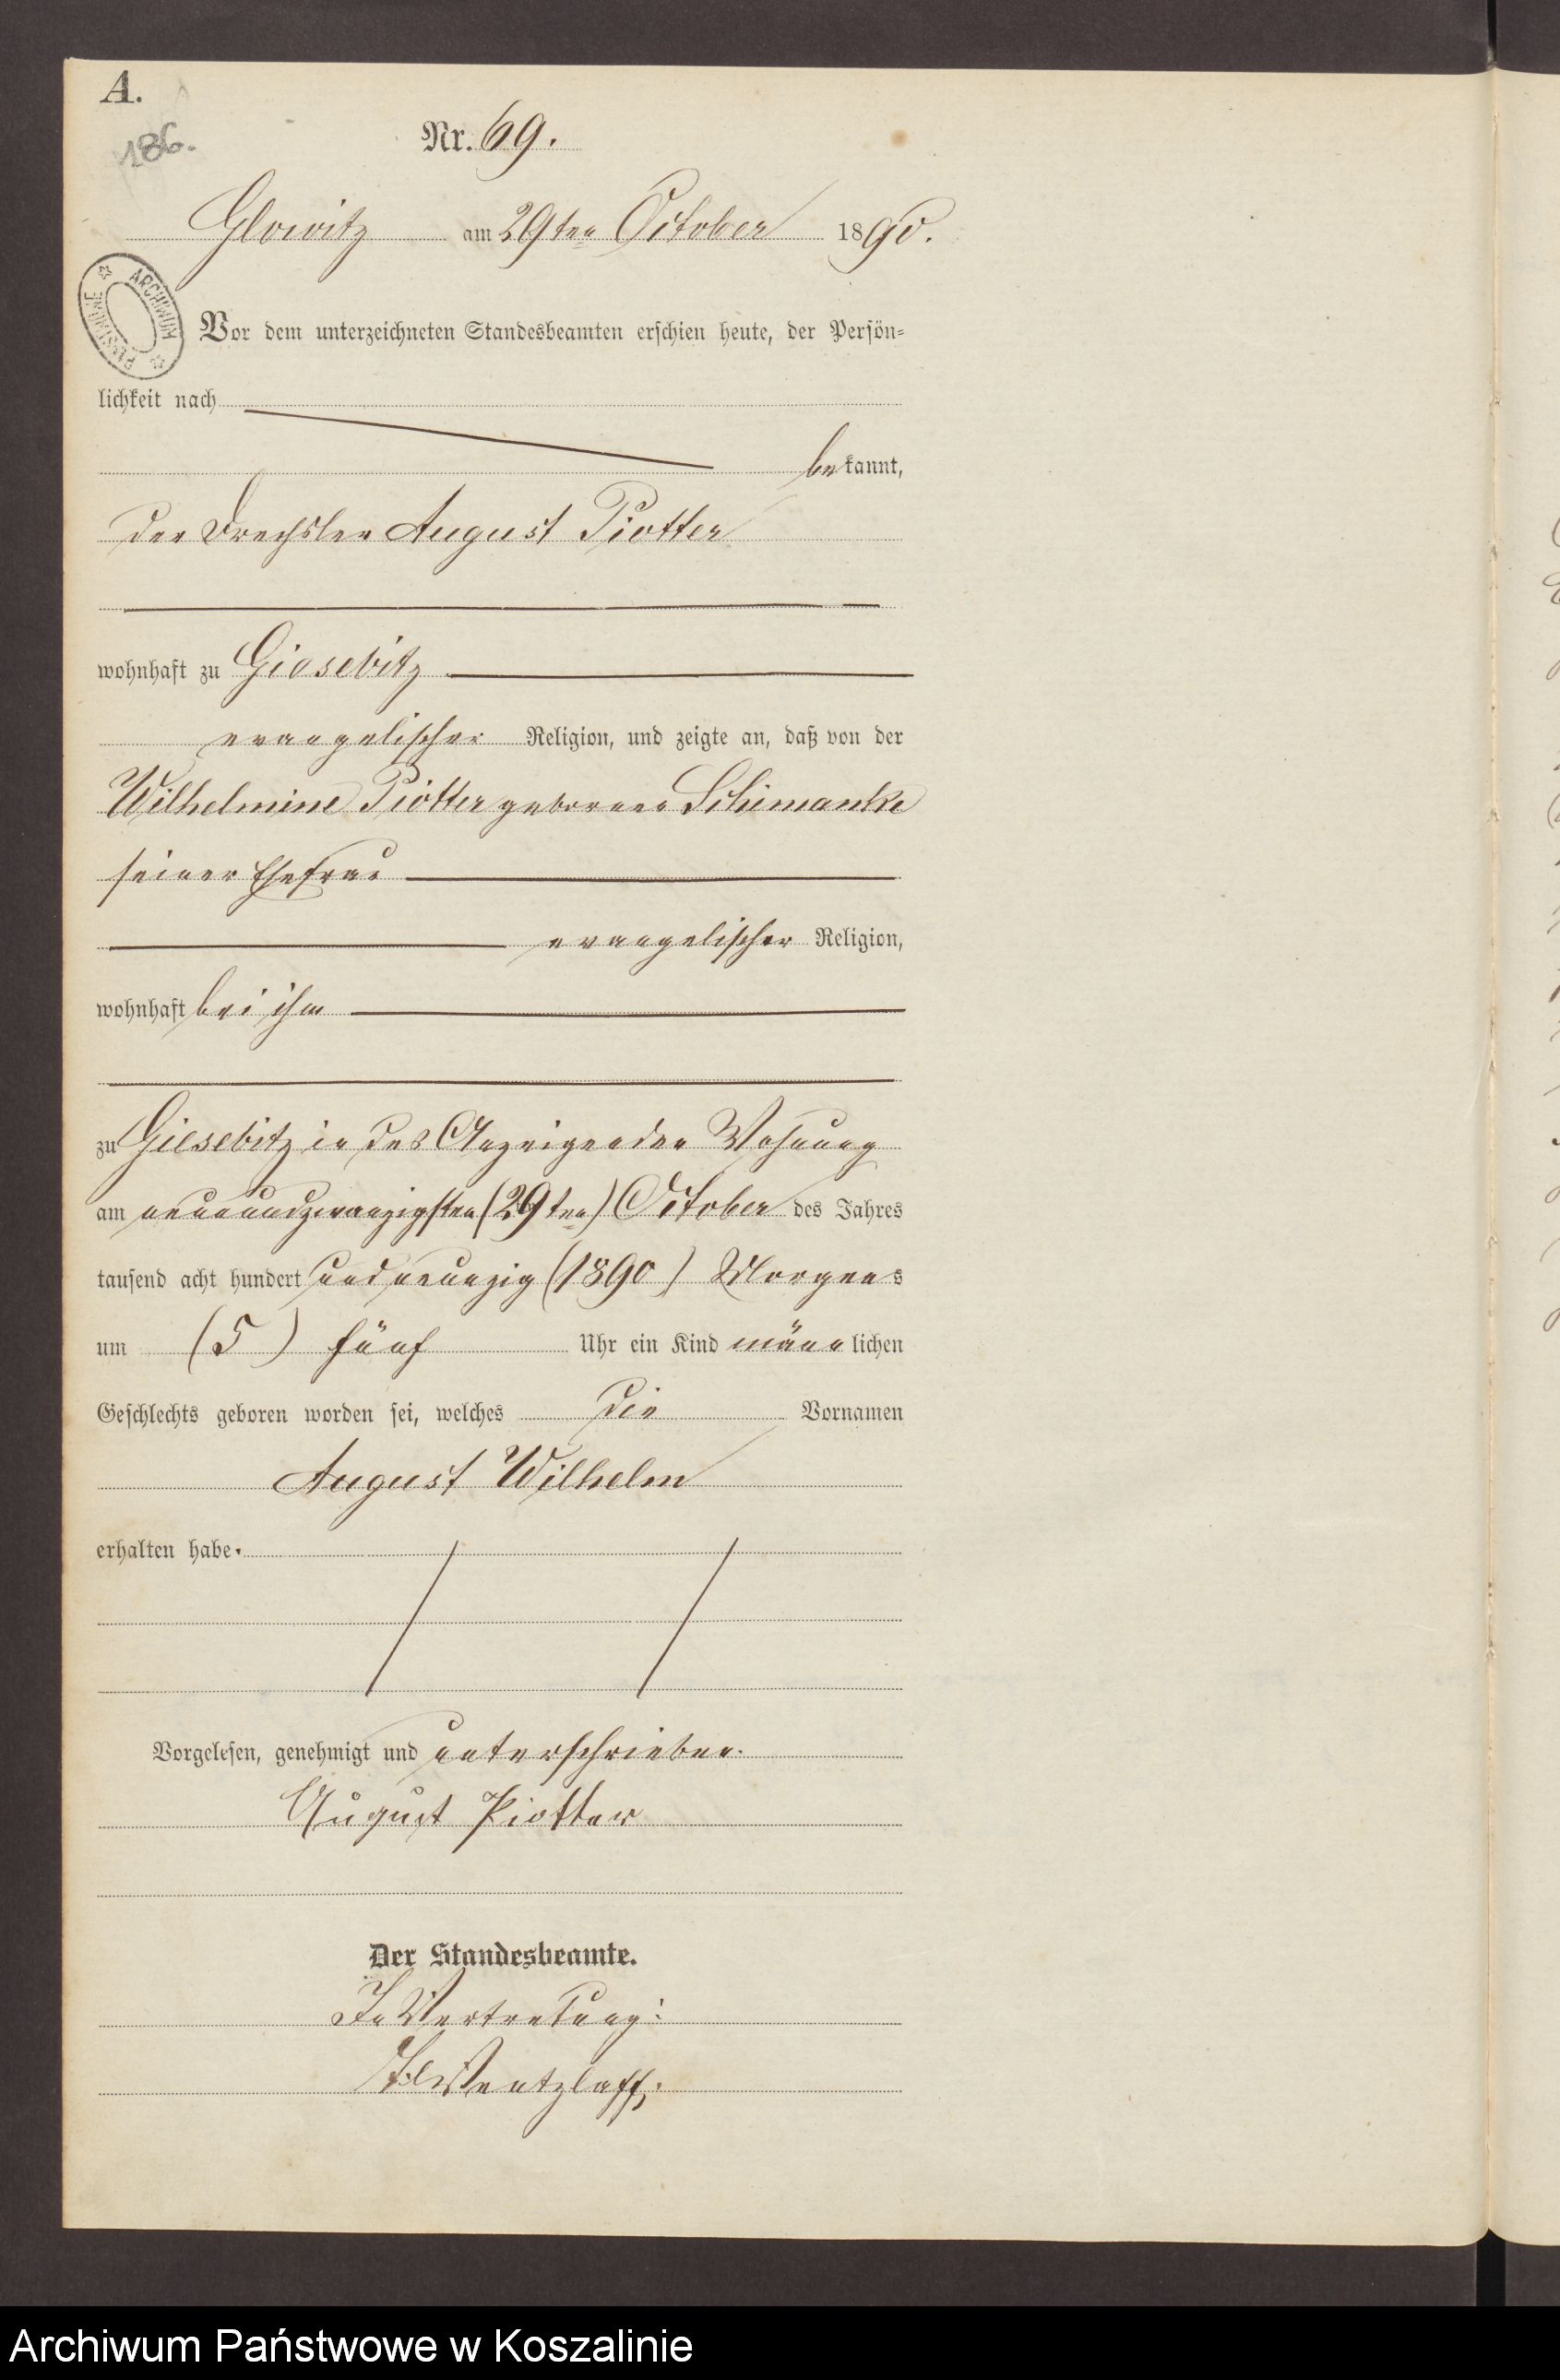 A.
186.
Nr. 69.
Glowitz am 29ten October 1890.
ARCHIWUM
Vor dem unterzeichneten Standesbeamten erschien heute, der Persön-
lichkeit nach
bekannt,
der Drechsler August Piotter
wohnhaft zu Giesebitz
evangelischer Religion, und zeigte an, daß von der
Wilhelmine Piotter geborenen Schimanke
seiner Ehefrau
evangelischer Religion,
wohnhaft bei ihm
zu Giesebitz in des Anzeigenden Wohnung
am neunundzwanzigsten (29ten) October des Jahres
tausend acht hundert und neunzig (1890) Morgens
um (5) fünf Uhr ein Kind männlichen
Geschlechts geboren worden sei, welches die Vornamen
August Wilhelm
erhalten habe.
Vorgelesen, genehmigt und unterschrieben.
August Piotter
Der Standesbeamte.
In Vertretung:
Wentzlaff.
Archiwum Państwowe w Koszalinie